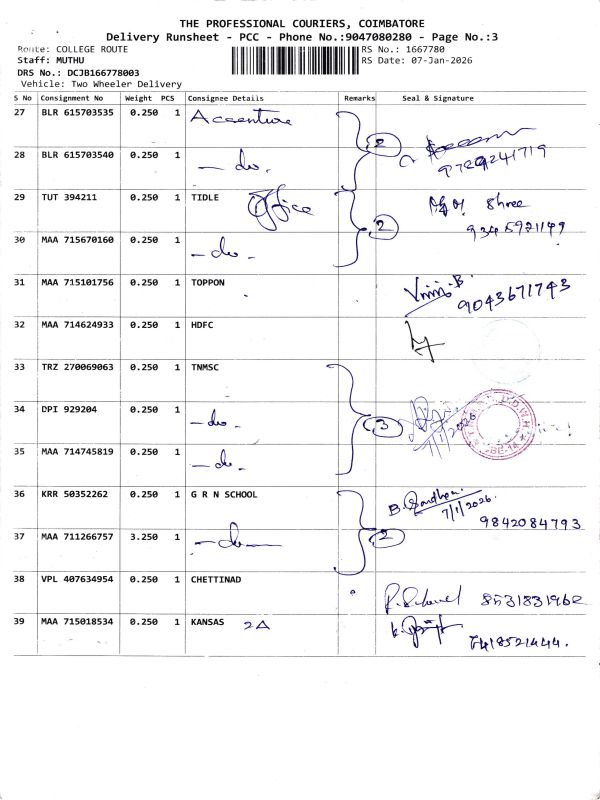 THE PROFESSIONAL COURIERS, COIMBATORE
Delivery Runsheet - PCC - Phone No.:9047080280 - Page No.:3
Route: COLLEGE ROUTE
RS No.: 1667780
Staff: MUTHU
RS Date: 07-Jan-2026
DRS No.: DCJB166778003
Vehicle: Two Wheeler Delivery
S No Consignment No Weight PCS Consignee Details Remarks Seal & Signature
27 BLR 615703535 0.250 1 Accenture
28 BLR 615703540 0.250 1 - do - 2 9789241719
29 TUT 394211 0.250 1 TIDLE Office Shree
30 MAA 715670160 0.250 1 - do - 2
31 MAA 715101756 0.250 1 TOPPON 9043671743
32 MAA 714624933 0.250 1 HDFC
33 TRZ 270069063 0.250 1 TNMSC
34 DPI 929204 0.250 1 - do - 3
35 MAA 714745819 0.250 1 - do -
36 KRR 50352262 0.250 1 G R N SCHOOL 7/1/2026.
37 MAA 711266757 3.250 1 - do - 2 9842084793
38 VPL 407634954 0.250 1 CHETTINAD 8531831962
39 MAA 715018534 0.250 1 KANSAS 2A